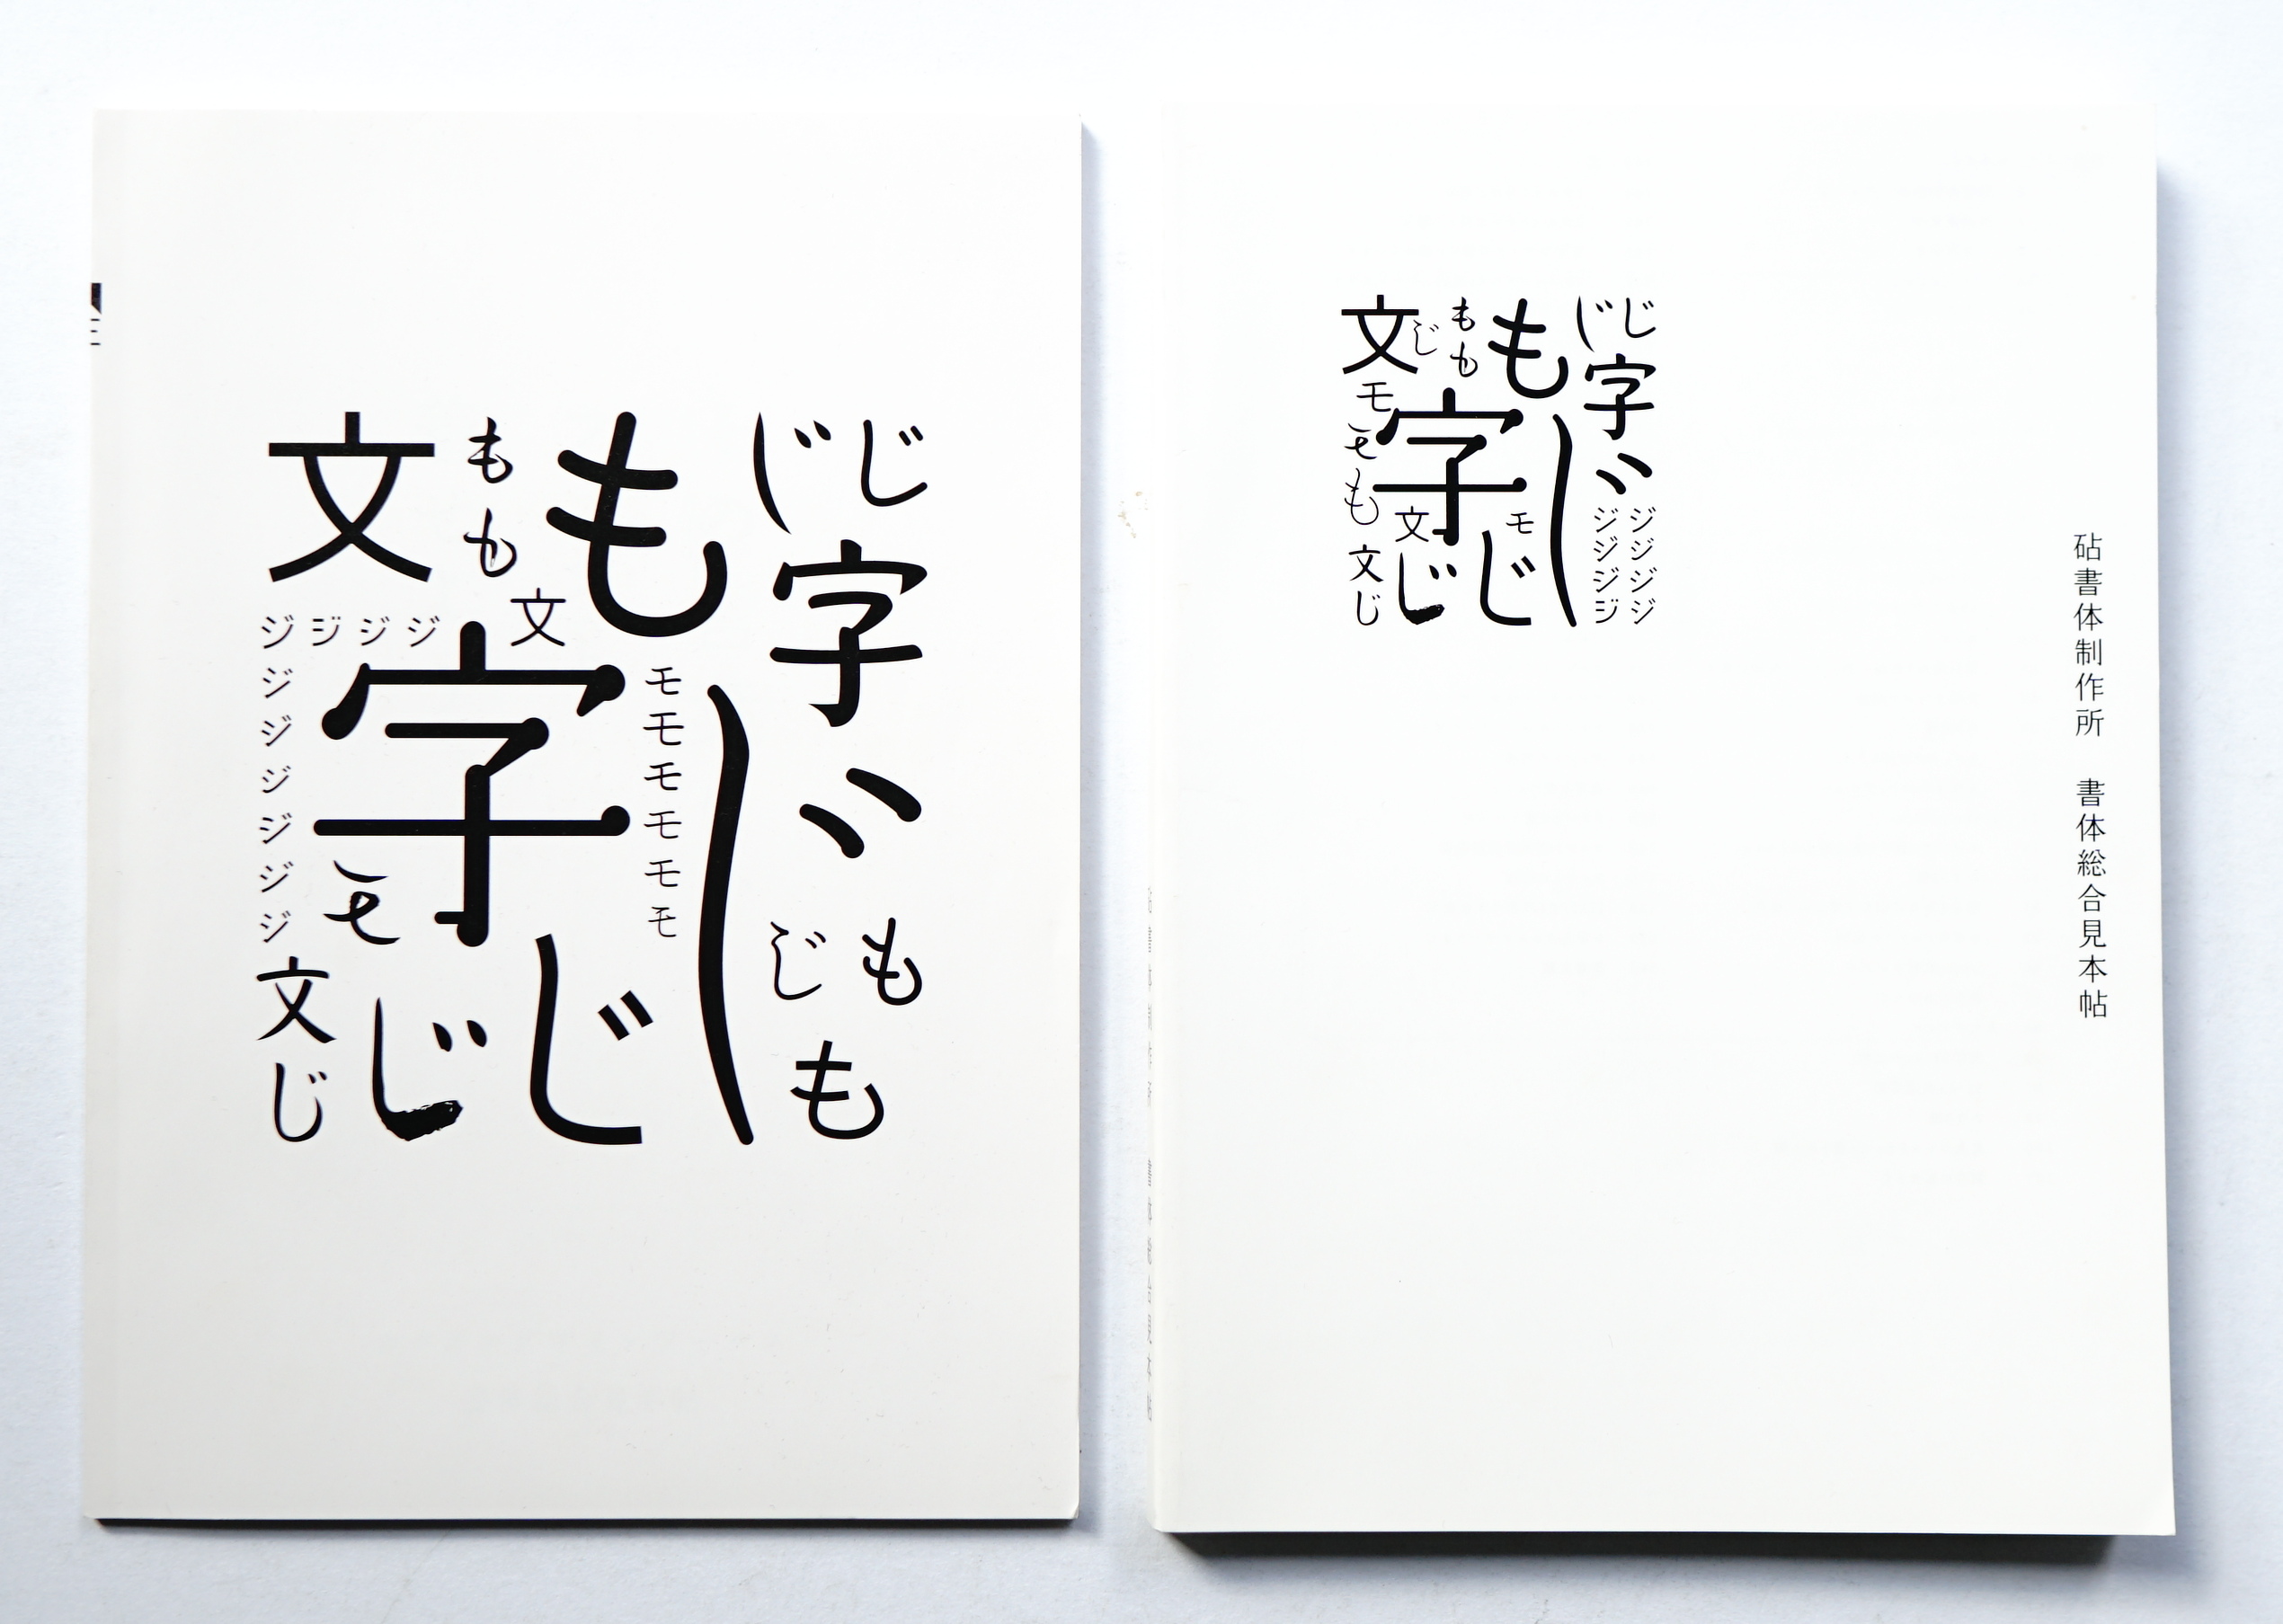 文 もも も じじ
ジジジジ 文 字
ジジジジジジ 字 モモモモモモ じ
モ じ も
文じ じ じ も
文 じ もも も じじ
モ 字 字
モ も 文 モ じ ジジジジ ジジジジ
文じ じ じ
砧書体制作所　書体総合見本帖